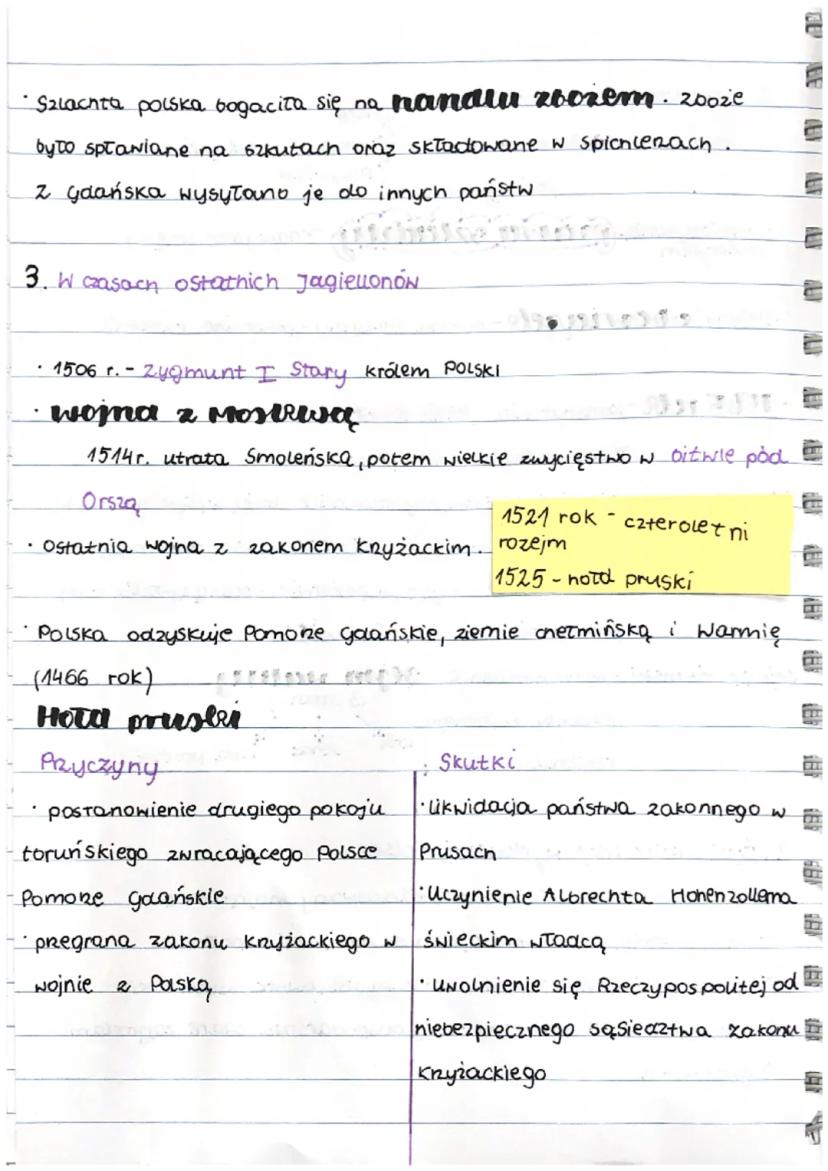 · Szlachta polska bogaciła się na handlu zbożem. zboże
było spławiane na szkutach oraz składowane w spichlerzach.
z Gdańska wysyłano je do innych państw
3. W czasach ostatnich Jagiellonów
· 1506 r. - Zygmunt I Stary królem Polski
· wojna z Moskwą
1514r. utrata Smoleńska, potem wielkie zwycięstwo w bitwie pod
Orszą
· ostatnia wojna z zakonem krzyżackim.
1521 rok - czteroletni
rozejm
1525 - hołd pruski
· Polska odzyskuje Pomorze gdańskie, ziemie chełmińską i Warmię
(1466 rok)
Hołd pruski
Przyczyny
· postanowienie drugiego pokoju
toruńskiego zwracającego Polsce
Pomorze gdańskie
· przegrana zakonu krzyżackiego w
wojnie z Polską
Skutki
· likwidacja państwa zakonnego w
Prusach
· Uczynienie Albrechta Hohenzollerna
świeckim władcą
· uwolnienie się Rzeczypospolitej od
niebezpiecznego sąsiedztwa zakonu
krzyżackiego